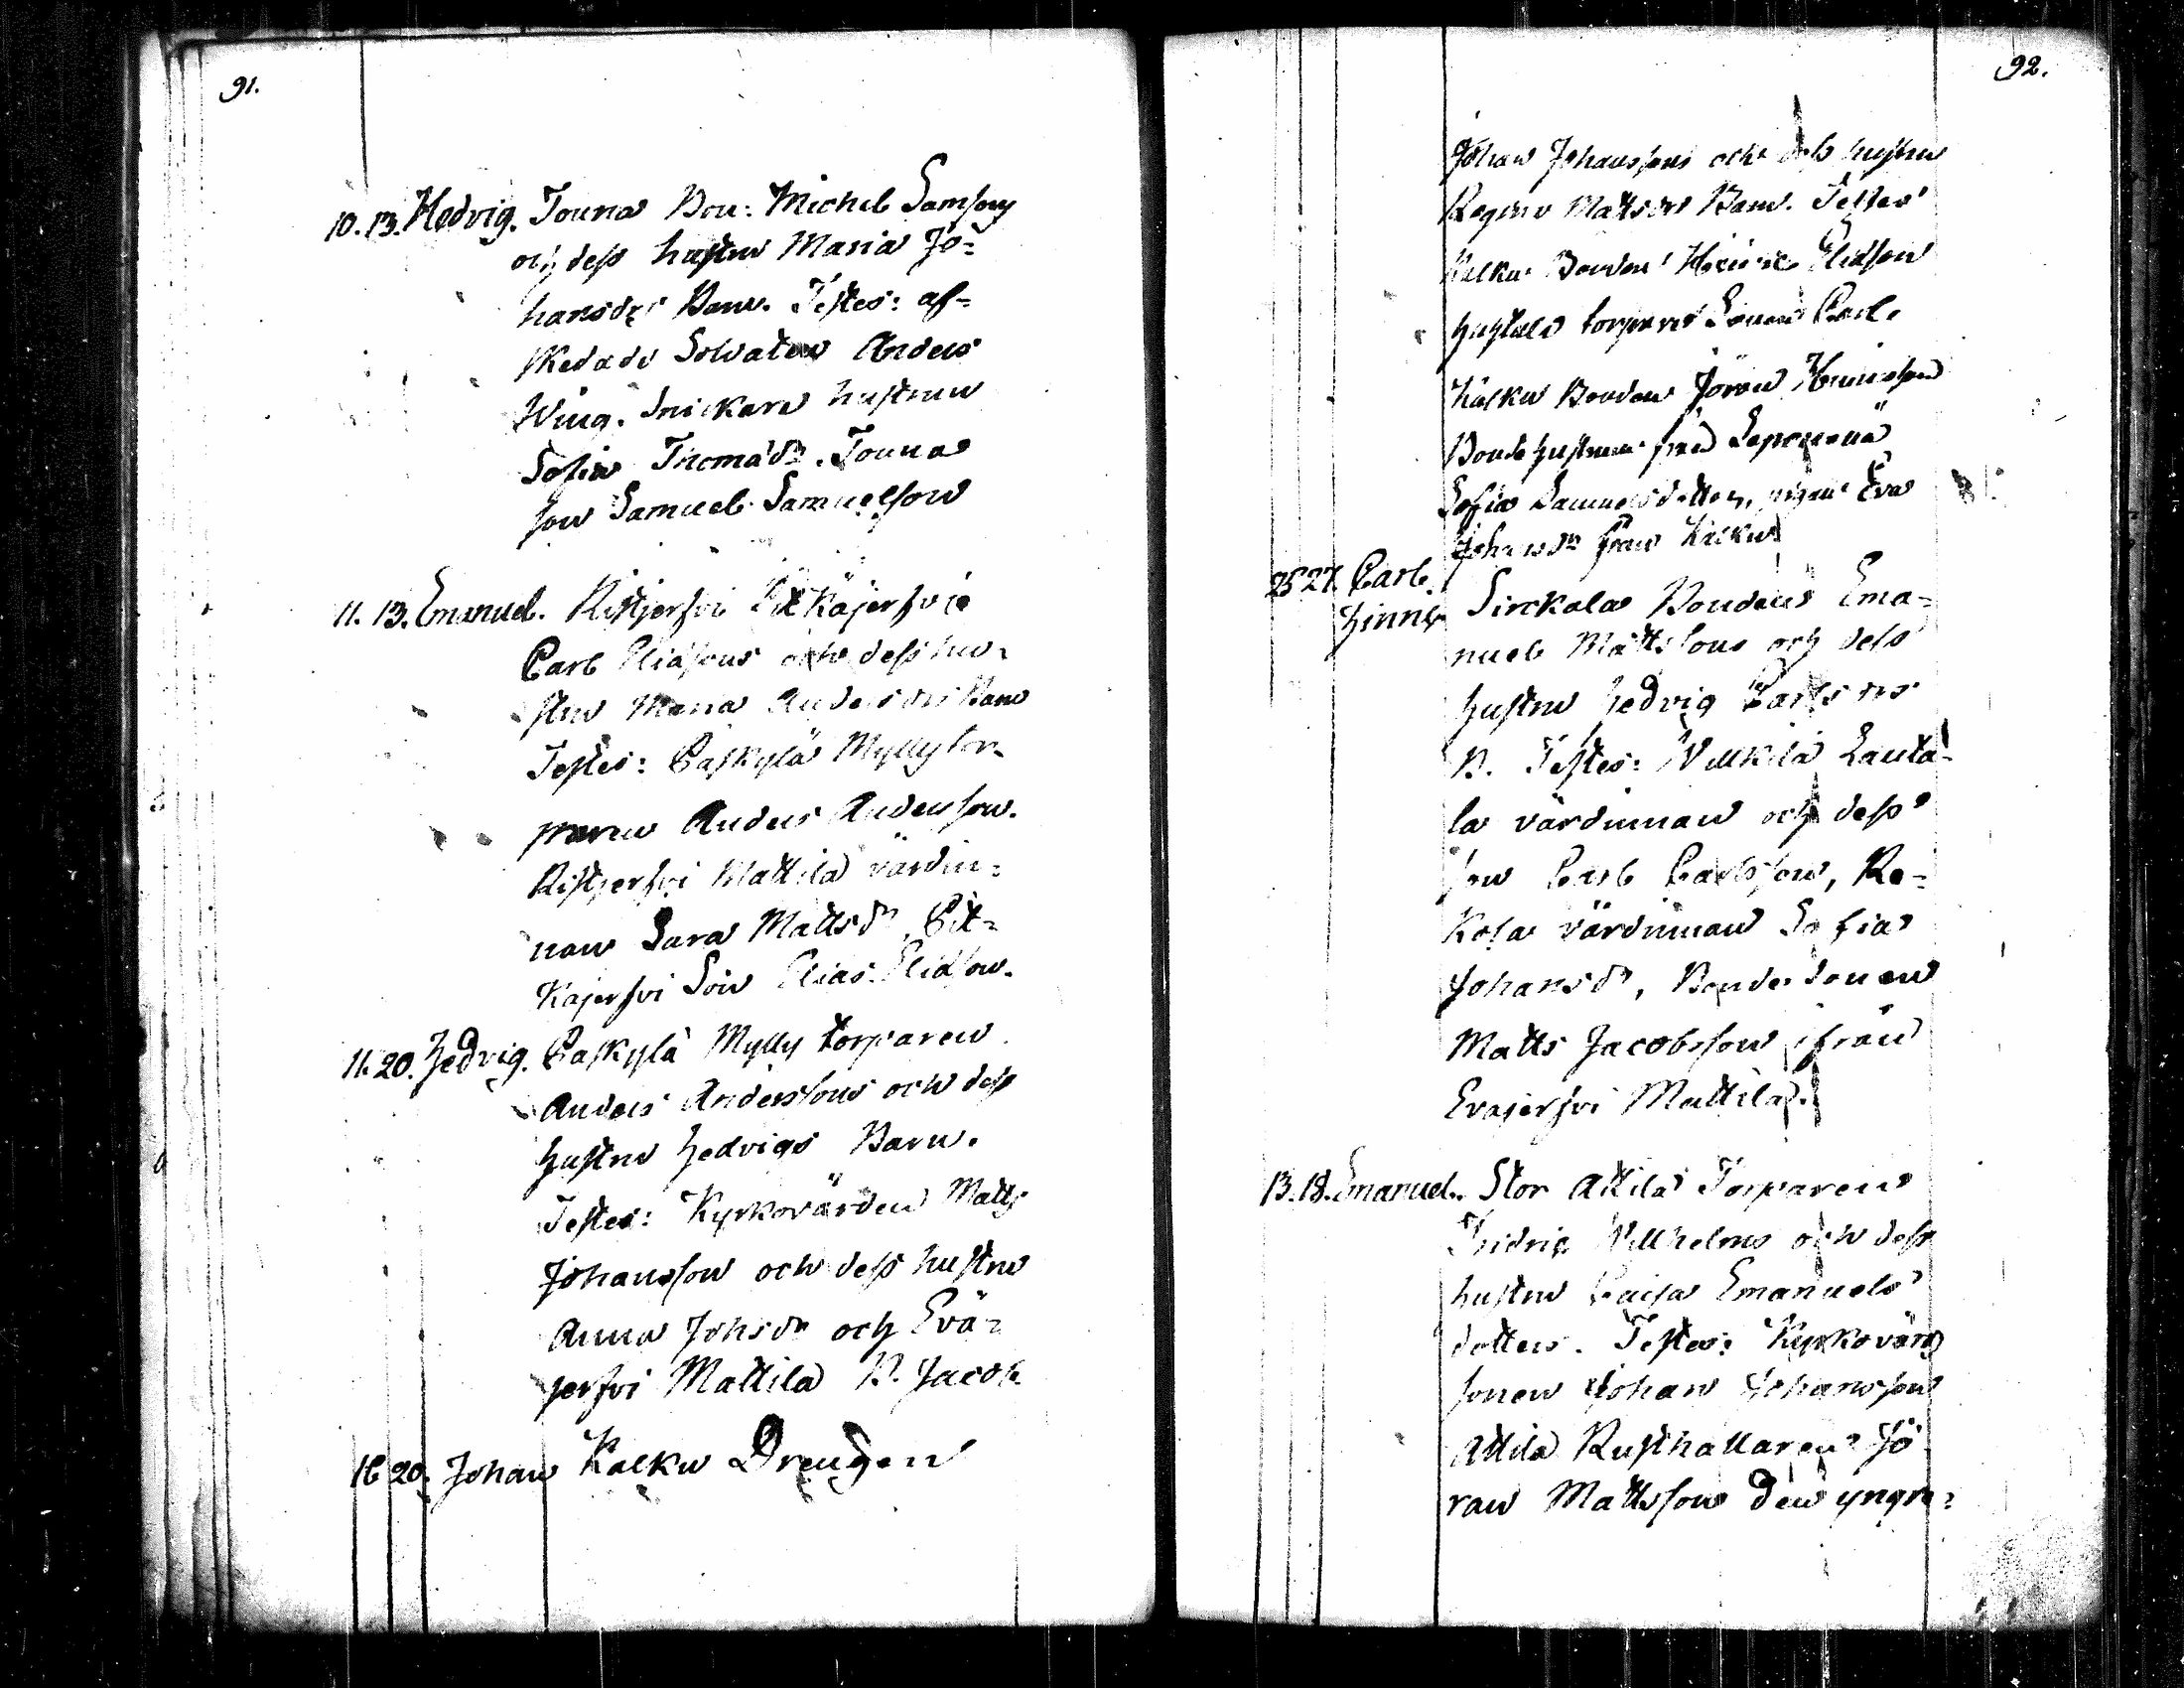 91.
10. 13. Hedvig. Jouna Bon: Michel Samsons
och dess hustru Maria Jo=
hansdrs Barn. Testes: af=
skedade Soldaten Anders
Wing. Snickare hustrun
Sofia Thomasdr. Jouna
son Samuel Samuelson
11. 13. Emanuel. Ristjerfvi Pitkäjerfvi
Carl Eliasons och dess hu=
stru Maria Andersdrs Barn
Testes: Paskylä Mylly tor=
paren Anders Andersson.
Ristjerfvi Mattila värdin=
nan Sara Mattsdr, Pit=
kajerfvi Son Elias Eliason.
11. 20. Hedvig. Paskylä Mylly torparen
Anders Anderssons och dess
hustru Hedvigs Barn.
Testes: Kyrkovärden Matts
Johansson och dess hustru
Anna Johsdr och Evä=
jerfvi Mattila B. Jacob
16 20. Johan Kalku Drengen
92.
Johan Johanssons och dess hustru
Regina Matsdrs Barn. Testes
Kalku Bonden Henric Eliason
torpare Sonen Carl.
Kalku Bonden Jöran Henricsson
Bonde hustrun från
Sofia Samuelsdotter, pigan Eva
Johansdr från Kalku
25 27. Carl. Sirckala Bonden Ema=
Hinnr. nuel Mattssons och dess
hustru Hedvig Carlsdrs
B. Testes: Willkila Lauta=
la värdinnan och dess
son Carl Carlsson, Re=
kola värdinnan Sofia
Johansdr, Bonde Sonen
Matts Jacobsson från
Evajerfvi Mattila.
13. 18. Emanuel. Stor Attila Torparens
Fridric Willhelms och dess
hustru Caisa Emanuels
dotters. Testes: Kyrkovärds
sonen Johan Johansson
Attila Rusthallaren Jö
ran Mattsson den yngre=